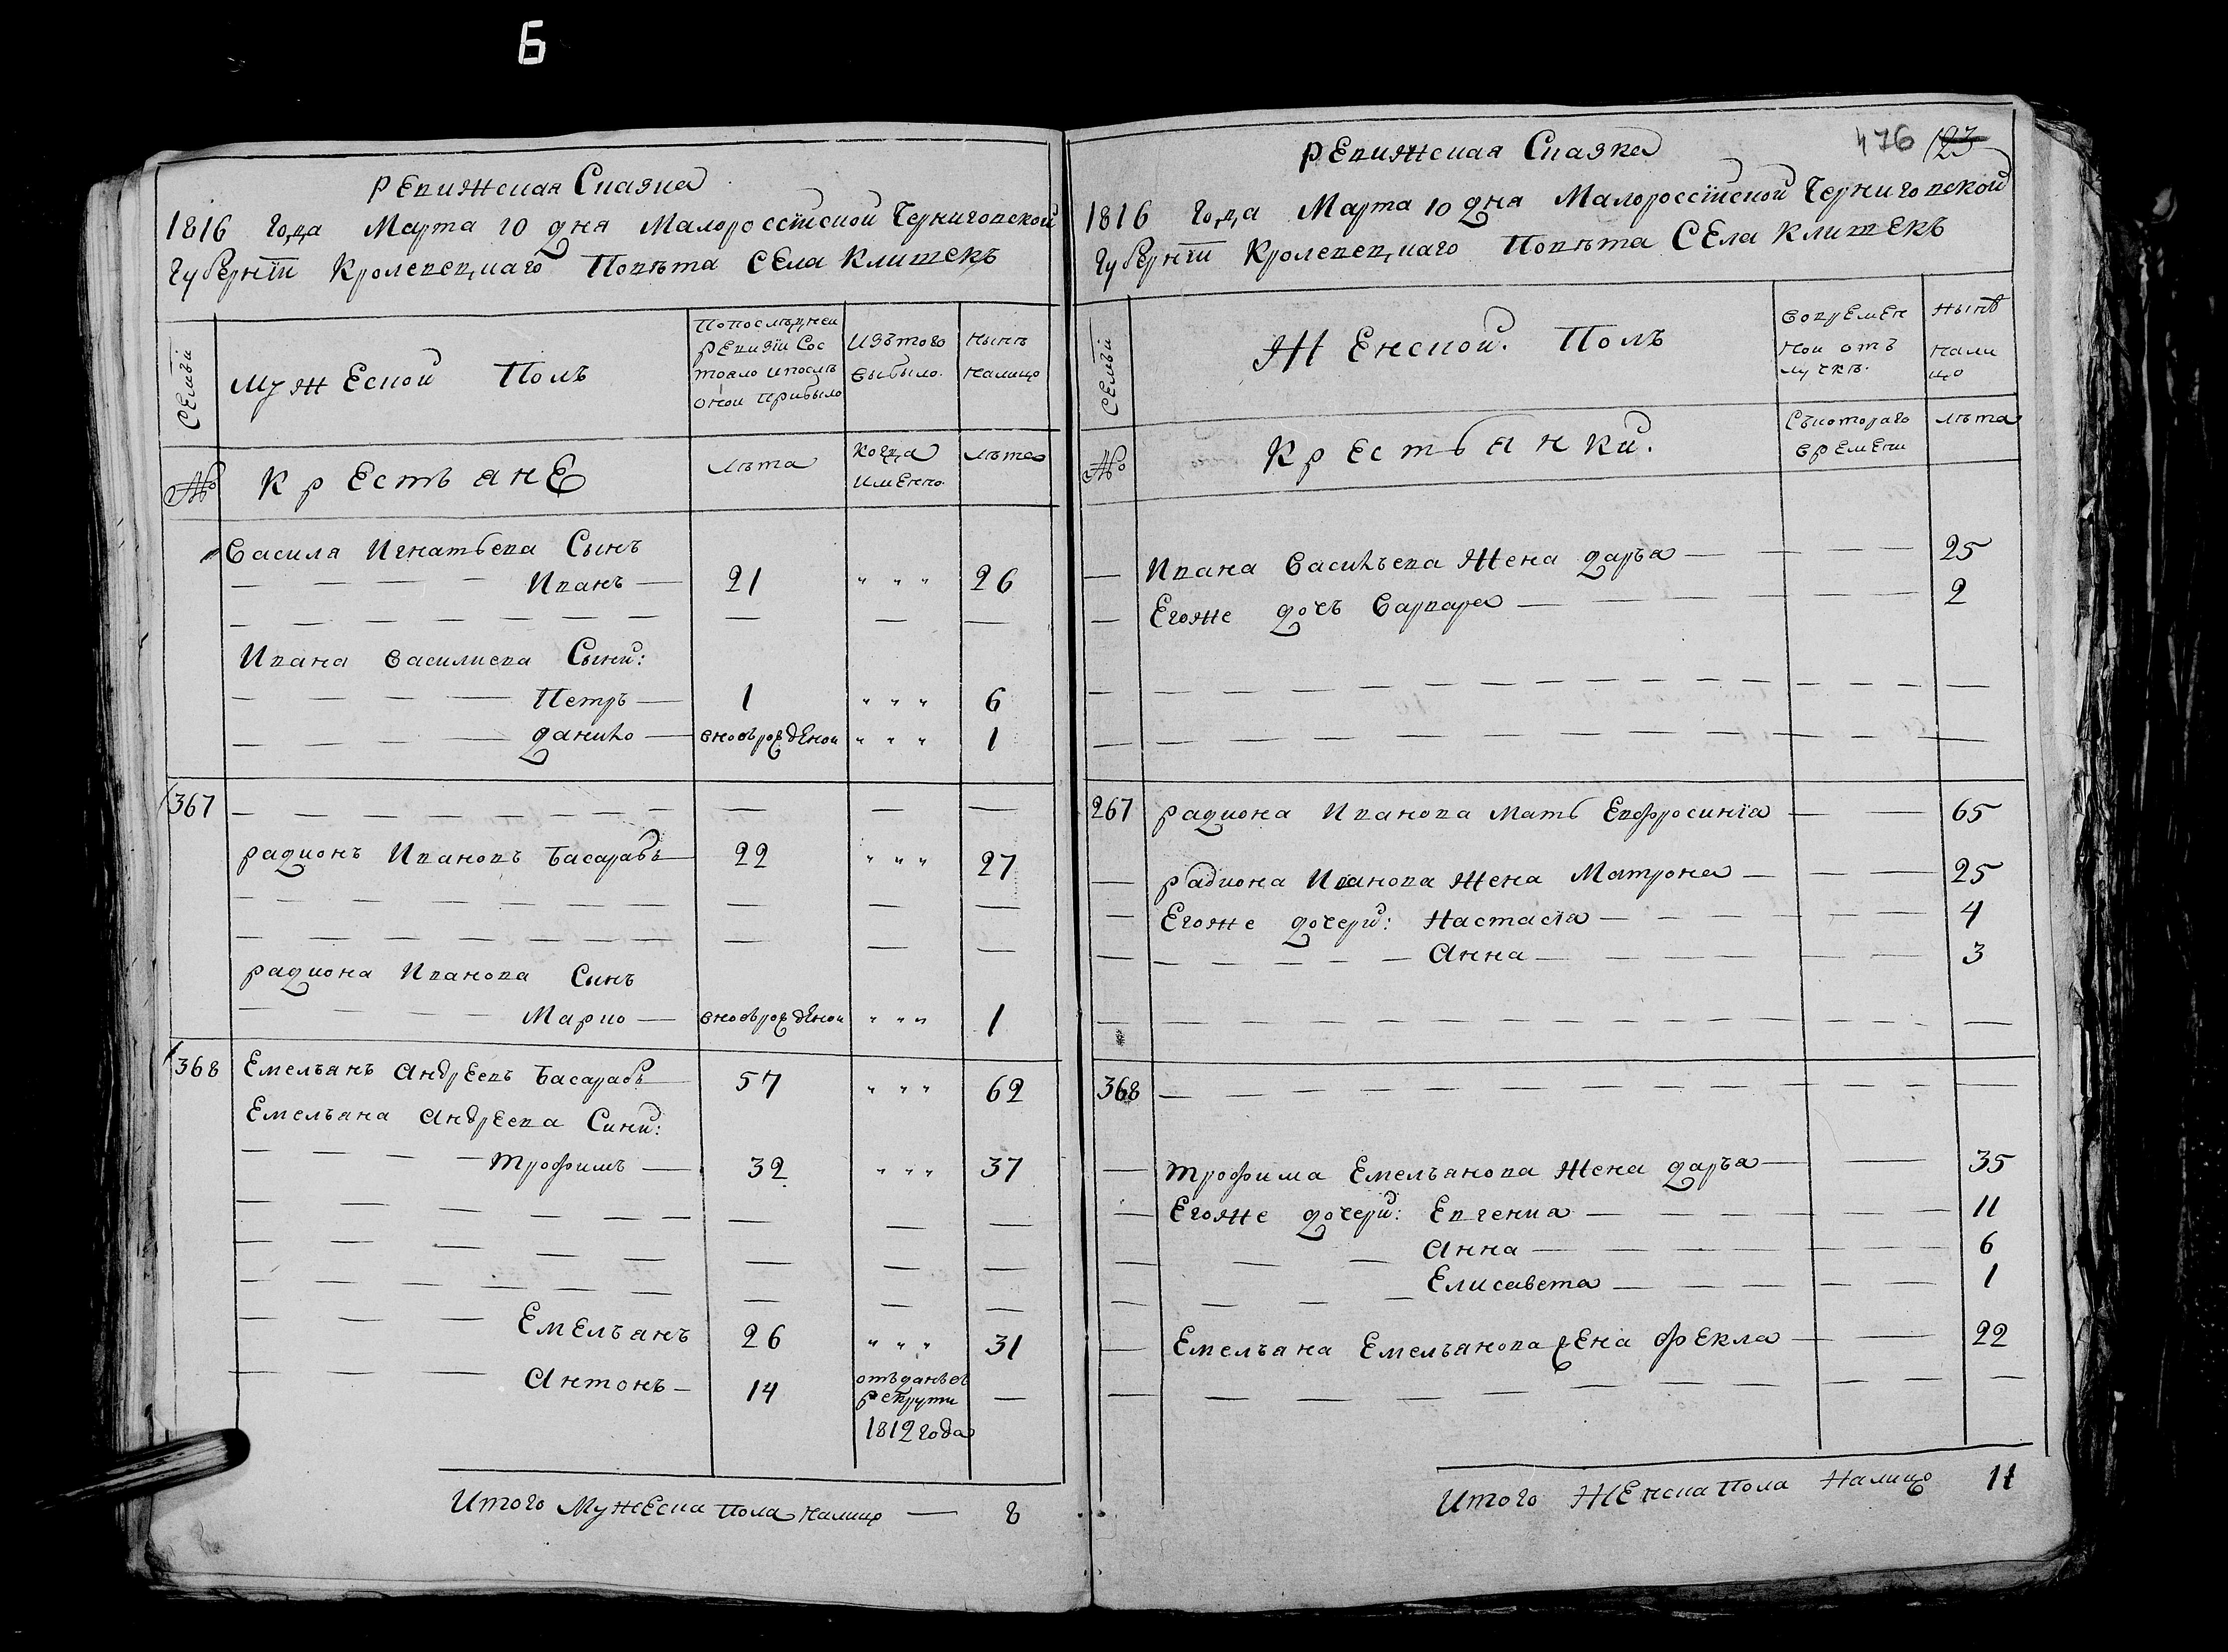 Б
Ревижская Сказка
1816 Года Марта 10 дня Малороссійской Черниговской
Губерніи Кролевецкаго Повѣта Села Клишекъ
Семьи
Мужеской Полъ
Попослѣдней
Ревизіи Сос
тояло ипослѣ
оной прибыло
Изътого
выбыло.
нынѣ
налицо
№
Крестъяне
лѣта
Когда
именно.
лѣта
Василя Игнатьева Сынъ
Иванъ 21 " " " 26
Ивана Василиева Сыни:
Петръ 1 " " " 6
Данило вновърожденои " " " 1
367
Радионъ Ивановъ Басарабъ 22 " " " 27
Радиона Иванова Синъ
Марко вновърожденои " " " 1
368 Емелъянъ Андреевъ Басарабъ 57 " " " 62
Емелъяна Андреева Сини:
Трофимъ 32 " " " 37
Емелъянъ 26 " " " 31
Антонъ 14 отъданъвъ
рекрути
1812 года
Итого Мужеска пола налицо 8
476 123
Ревижская Сказка
1816 Года Марта 10 дня Малороссійской Черниговской
Губерніи Кролевецкаго Повѣта Села Клишекъ
Семьи
Женской. Полъ
Вовремен
ной отъ
лучкѣ.
Нынѣ
нали
цо
№
Крестьянки.
Съкотораго
времени
лѣта
Ивана Василъева Жена Даръа 25
Егоже дочъ Варвара 2
267 Радиона Иванова Мать Евфросинїа 65
Радиона Иванова Жена Матрона 25
Егоже дочери: Настасїа 4
Анна 3
368
Трофима Емелъянова Жена Даръа 35
Егоже дочери: Евгениа 11
Анна 6
Елисавета 1
Емелъяна Емелъянова жена Фекла 22
Итого Женска пола Налицо 11